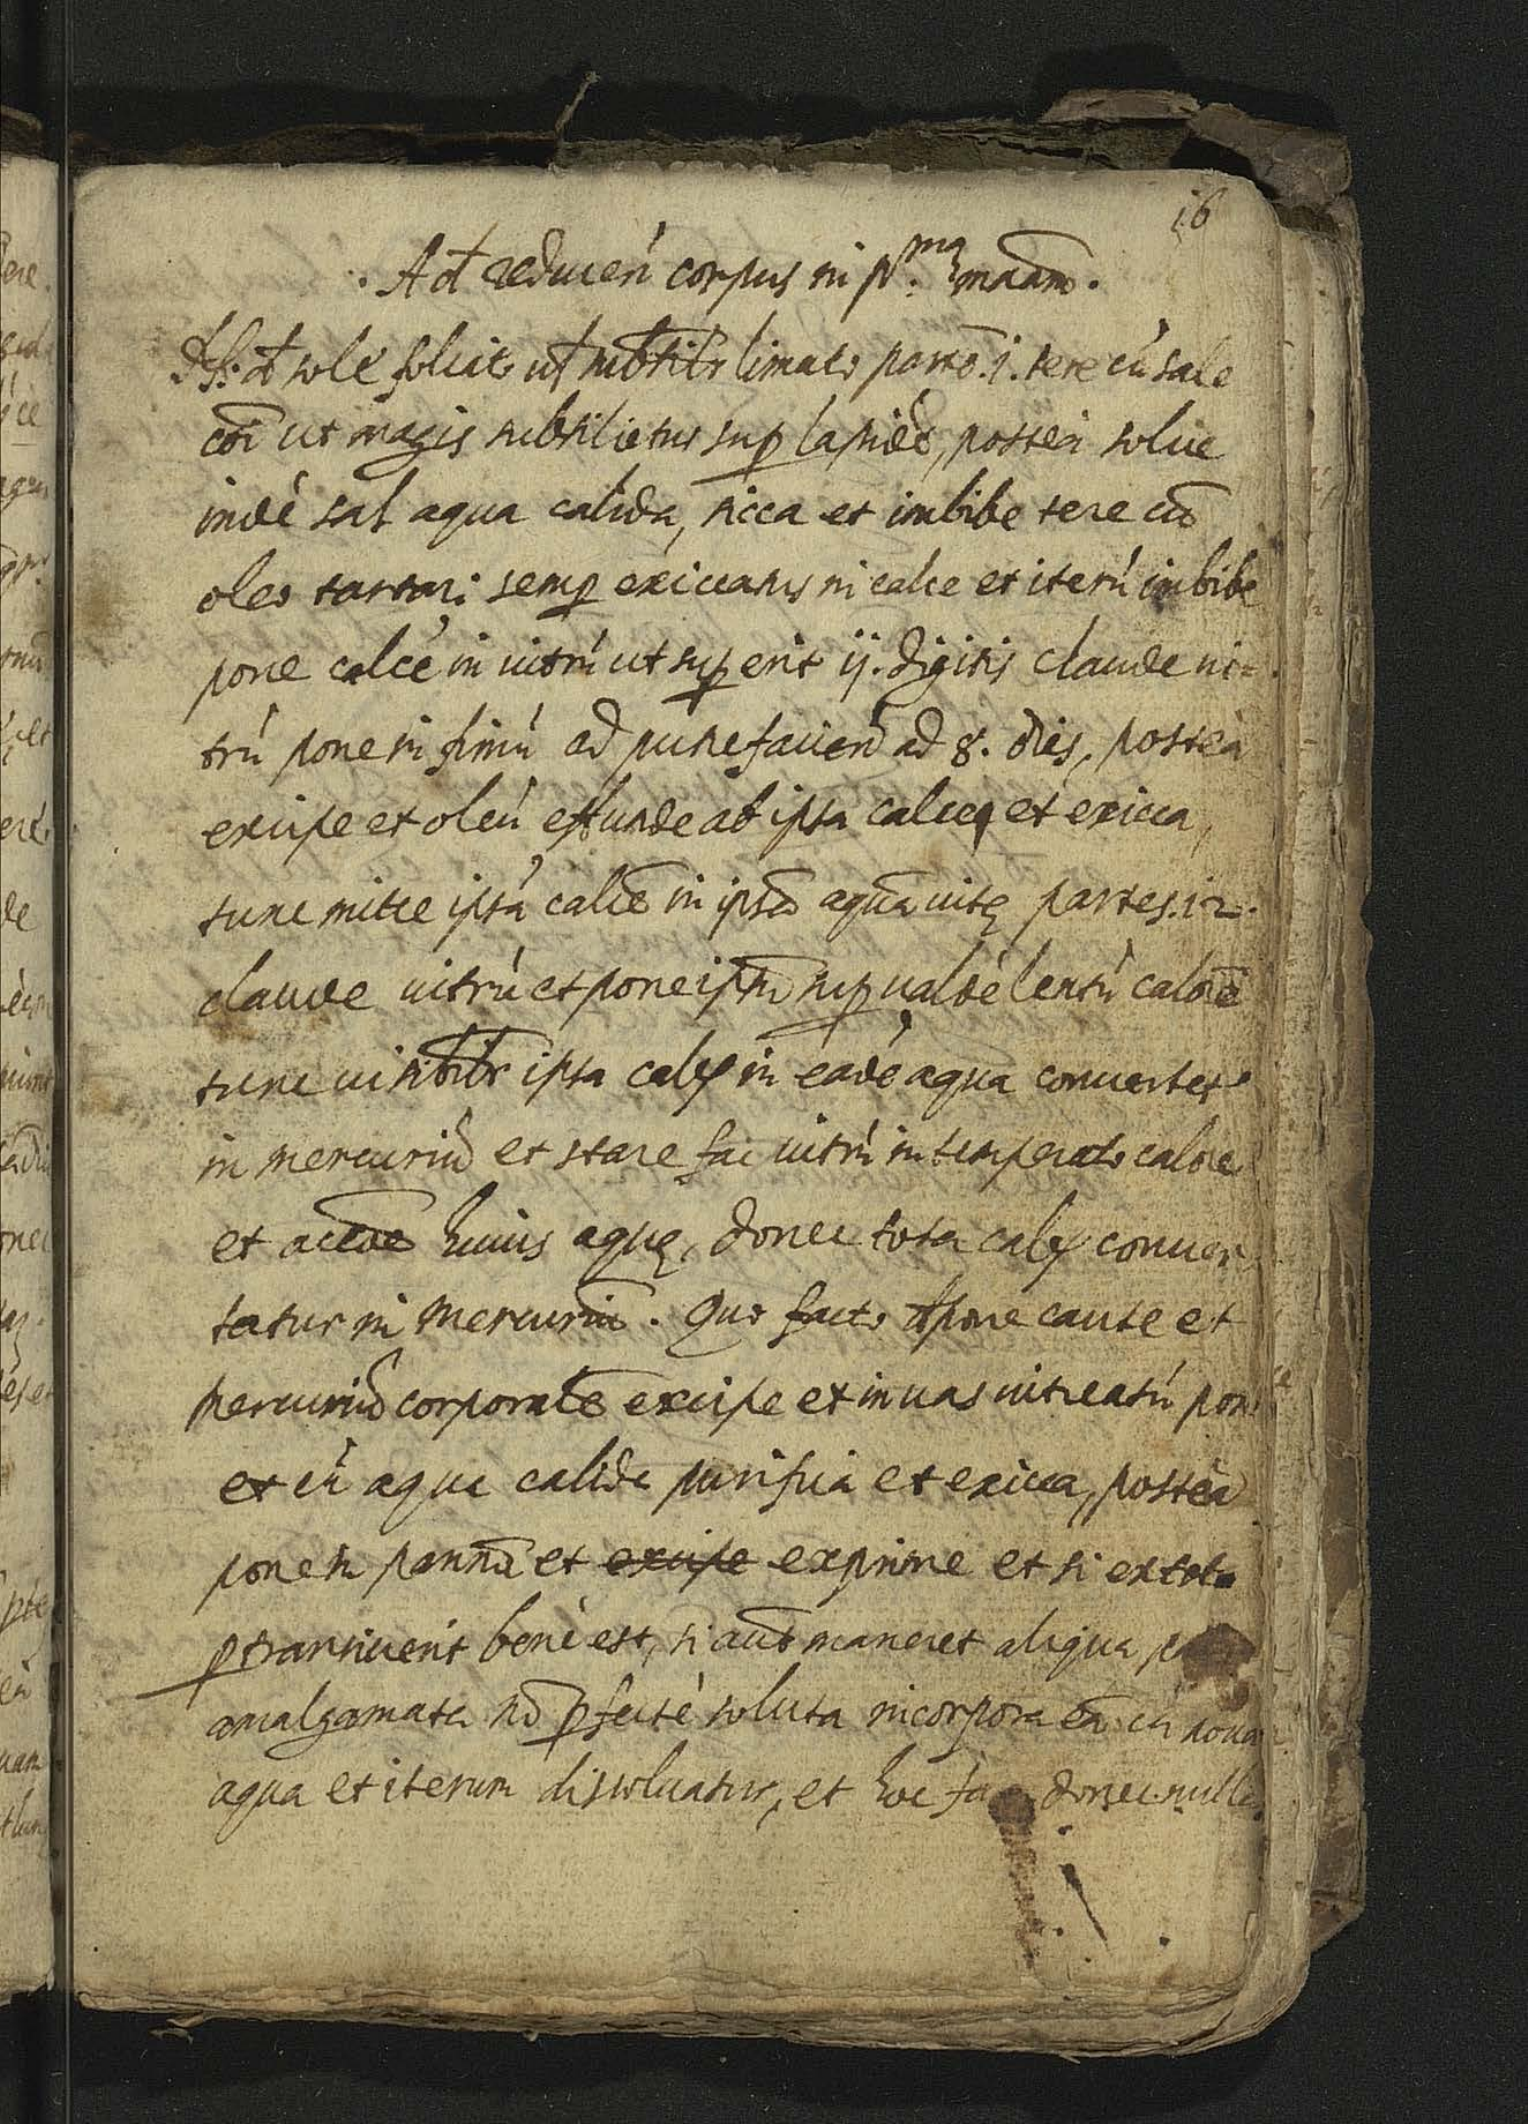 16
. Ad reducen̄ corpus in pr.ma ma͞am.
sole folito ut subtilr limato parte͞. j. tere cū sale
co͞i ut magis subtilietur sup lapide͞, posteà solue
indè sal aqua calida, sicca et imbibe tere cu͞
oleo tartari semp exiccatus in calce et iterū imbibe
pone calcē in uitrū ut sup erit ij. digitis claude ui=
trū pone in fimū ad putrefacien̄d ad 8. dies, posteà
excipe et oleū effunde ab ipsa calce et exicca,
tunc mitte ipsā calce͞ in ipsa͞ aqua͞ uitę partes. 12.
claude uitrū et pone ipsu͞ sup ualdè lentū calore͞
tunc uisibilr ipsa calx in eādē aqua conuertet
in mercuriu͞ et stare fac uitrū in temperato calore
et accede huius aquę, donec tota calx conuer
tatur in Mercuriu͞. Quo facto depone caute et
Mercuriu͞ corporale͞ excipe et in uas uitreatū pon
et cū aqua calida purifica et exicca, posteà
pone in pannu͞ et excipe exprime et si ex toto
ptransiuerit benè est, si aut͞ maneret aliqua
amalgamata no͞ pfectè soluta incorpora ea͞ cū noua
aqua et iterum dissoluatur, et hoc fac donec nulla